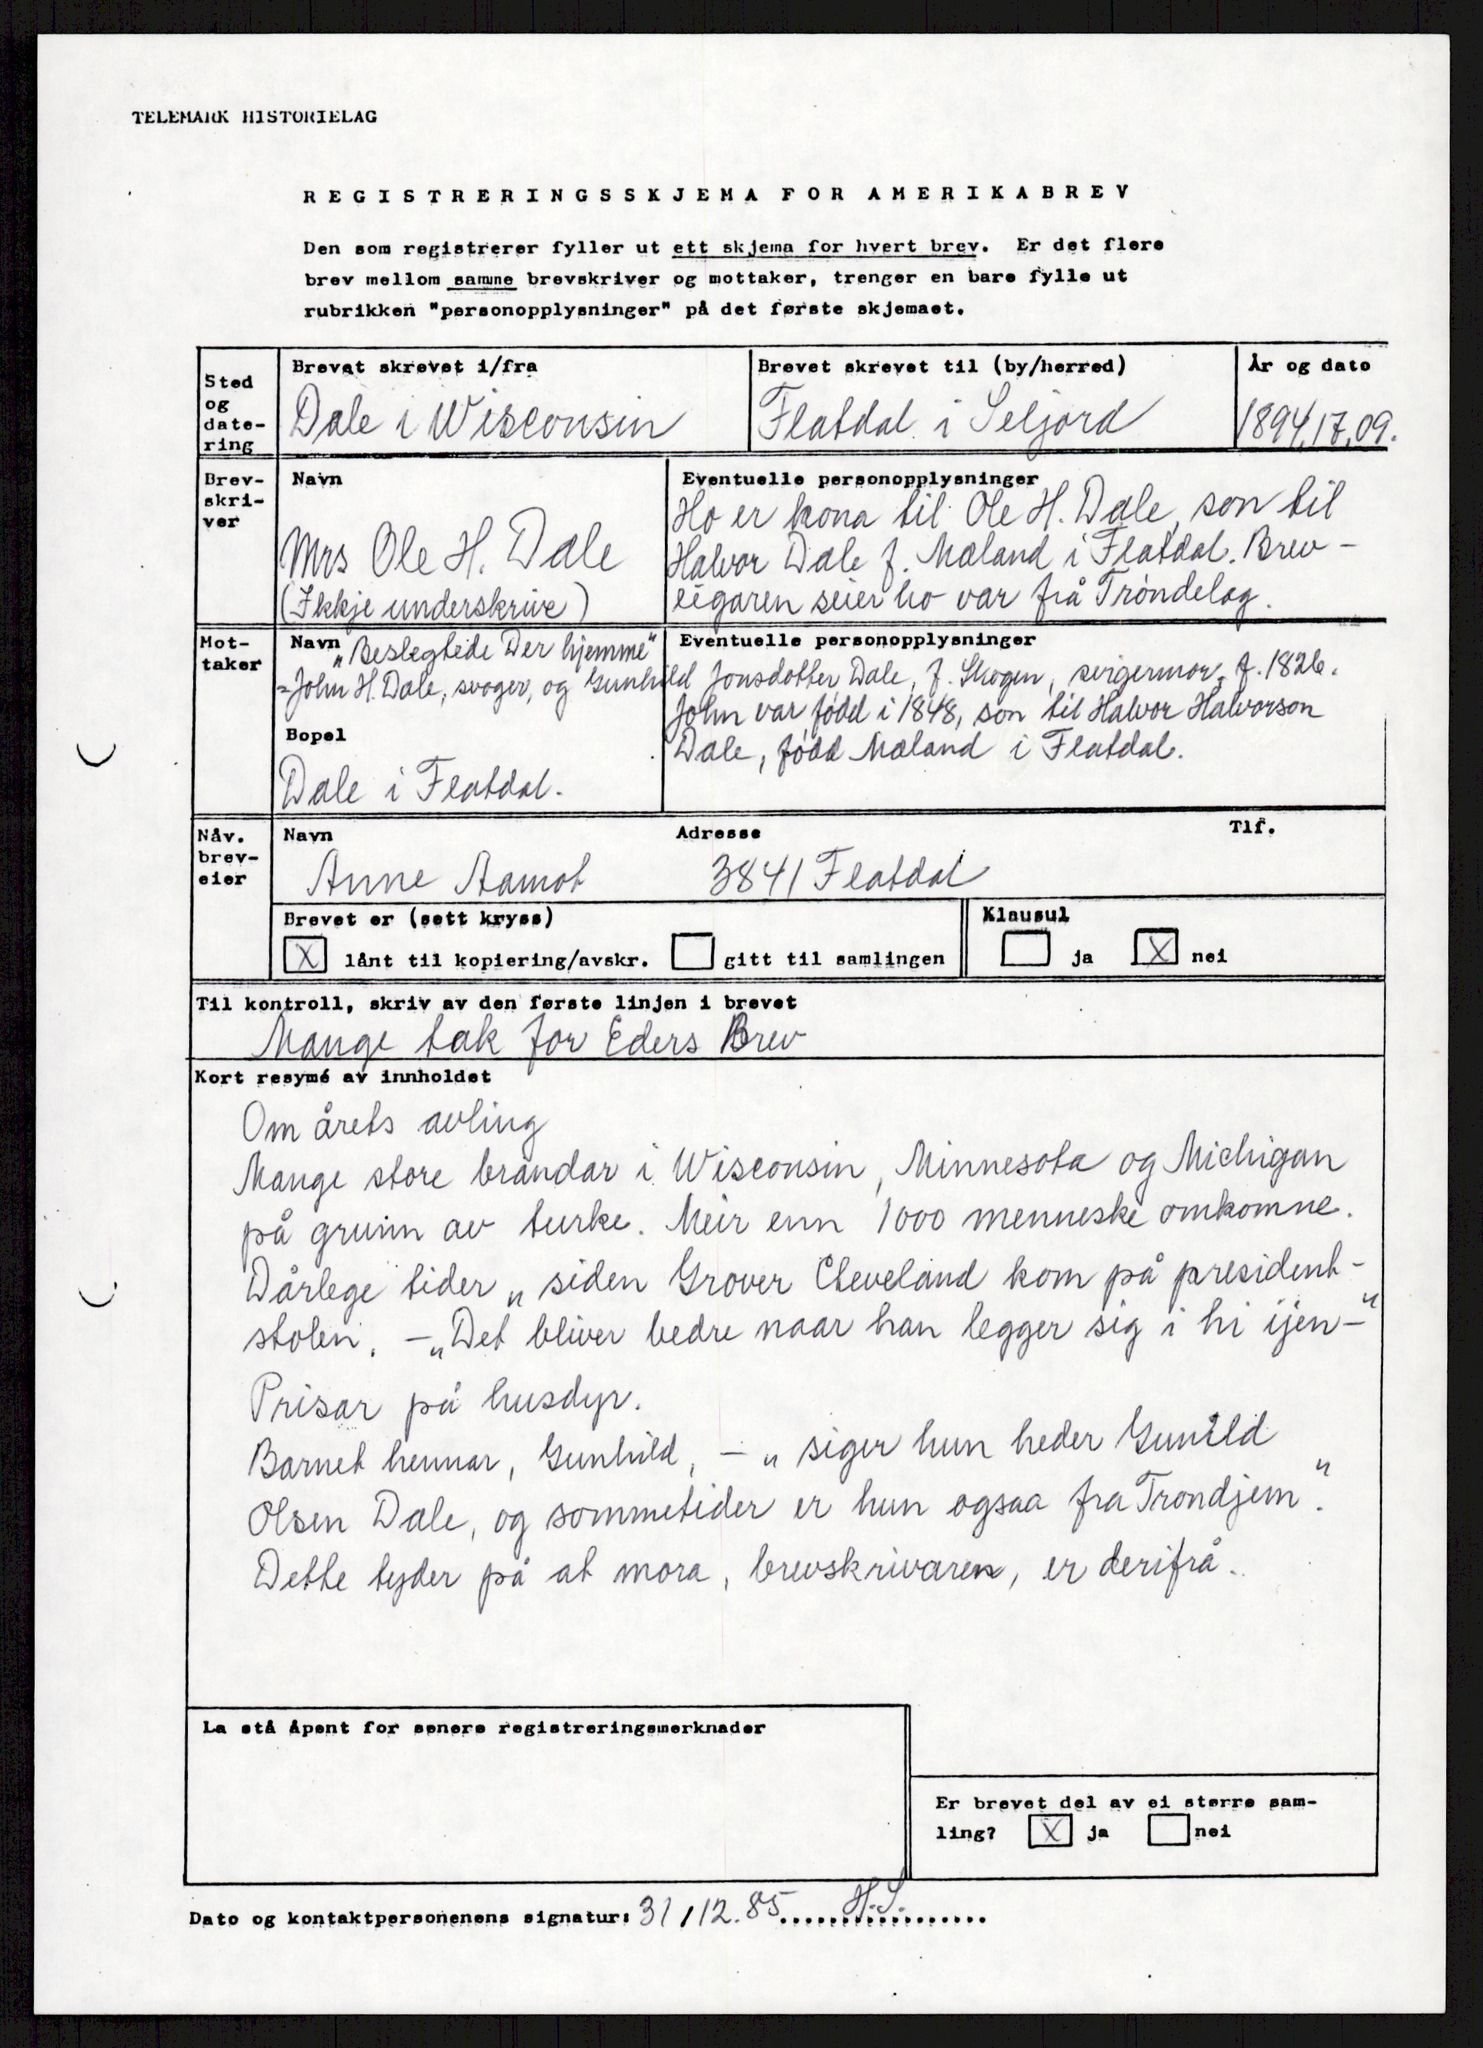 TELEMARK HISTORIELAG
REGISTRERINGSSKJEMA FOR AMERIKABREV
Den som registrerer fyller ut ett skjema for hvert brev. Er det flere
brev mellom samme brevskriver og mottaker, trenger en bare fylle ut
rubrikken "personopplysninger" på det første skjemaet.
Sted og date-ring
Brevet skrevet i/fra
Dale i Wisconsin
Brevet skrevet til (by/herred)
Flatdal i Seljord
År og dato
1894,17,09.
Brev-
skri-
ver
Navn
Mrs Ole H. Dale
(Ikkje underskrive)
Eventuelle personopplysninger
Ho er kona til Ole H. Dale, son til
Halvor Dale f. Mæland i Flatdal. Brev-
eigaren seier ho var frå Trøndelag.
Mot-
taker
Navn
"Beslegtede Der hjemme"
=John H. Dale, svoger, og Gunhild Jonsdotter Dale, f. Skogen, svigermor, f. 1826.
Bopel
Dale i Flatdal.
Eventuelle personopplysninger
John var fødd i 1848, son til Halvor Halvorson
Dale, fødd Mæland i Flatdal.
Nåv.
brev-
eier
Navn Adresse Tlf.
Anne Aamot 3841 Flatdal
Brevet er (sett kryss)
X lånt til kopiering/avskr. gitt til samlingen
Klausul
ja X nei
Til kontroll, skriv av den første linjen i brevet
Mange tak for Eders Brev
Kort resymé av innholdet
Om årets avling
Mange store brandar i Wisconsin, Minnesota og Michigan
på grunn av turke. Meir enn 1000 menneske omkomne.
Dårlege tider „siden Grover Cleveland kom på president-
stolen. – „Det bliver bedre naar han legger sig i hi ijen–"
Prisar på husdyr.
Barnet hennar, Gunhild, – „siger hun heder Gunild
Olsen Dale, og sommetider er hun ogsaa fra Trondjem".
Dette tyder på at mora, brevskrivaren, er derifrå.
La stå åpent for senere registreringsmerknader
Er brevet del av ei større sam-
ling? X ja nei
Dato og kontaktpersonenens signatur: 31/12.85 H.S.